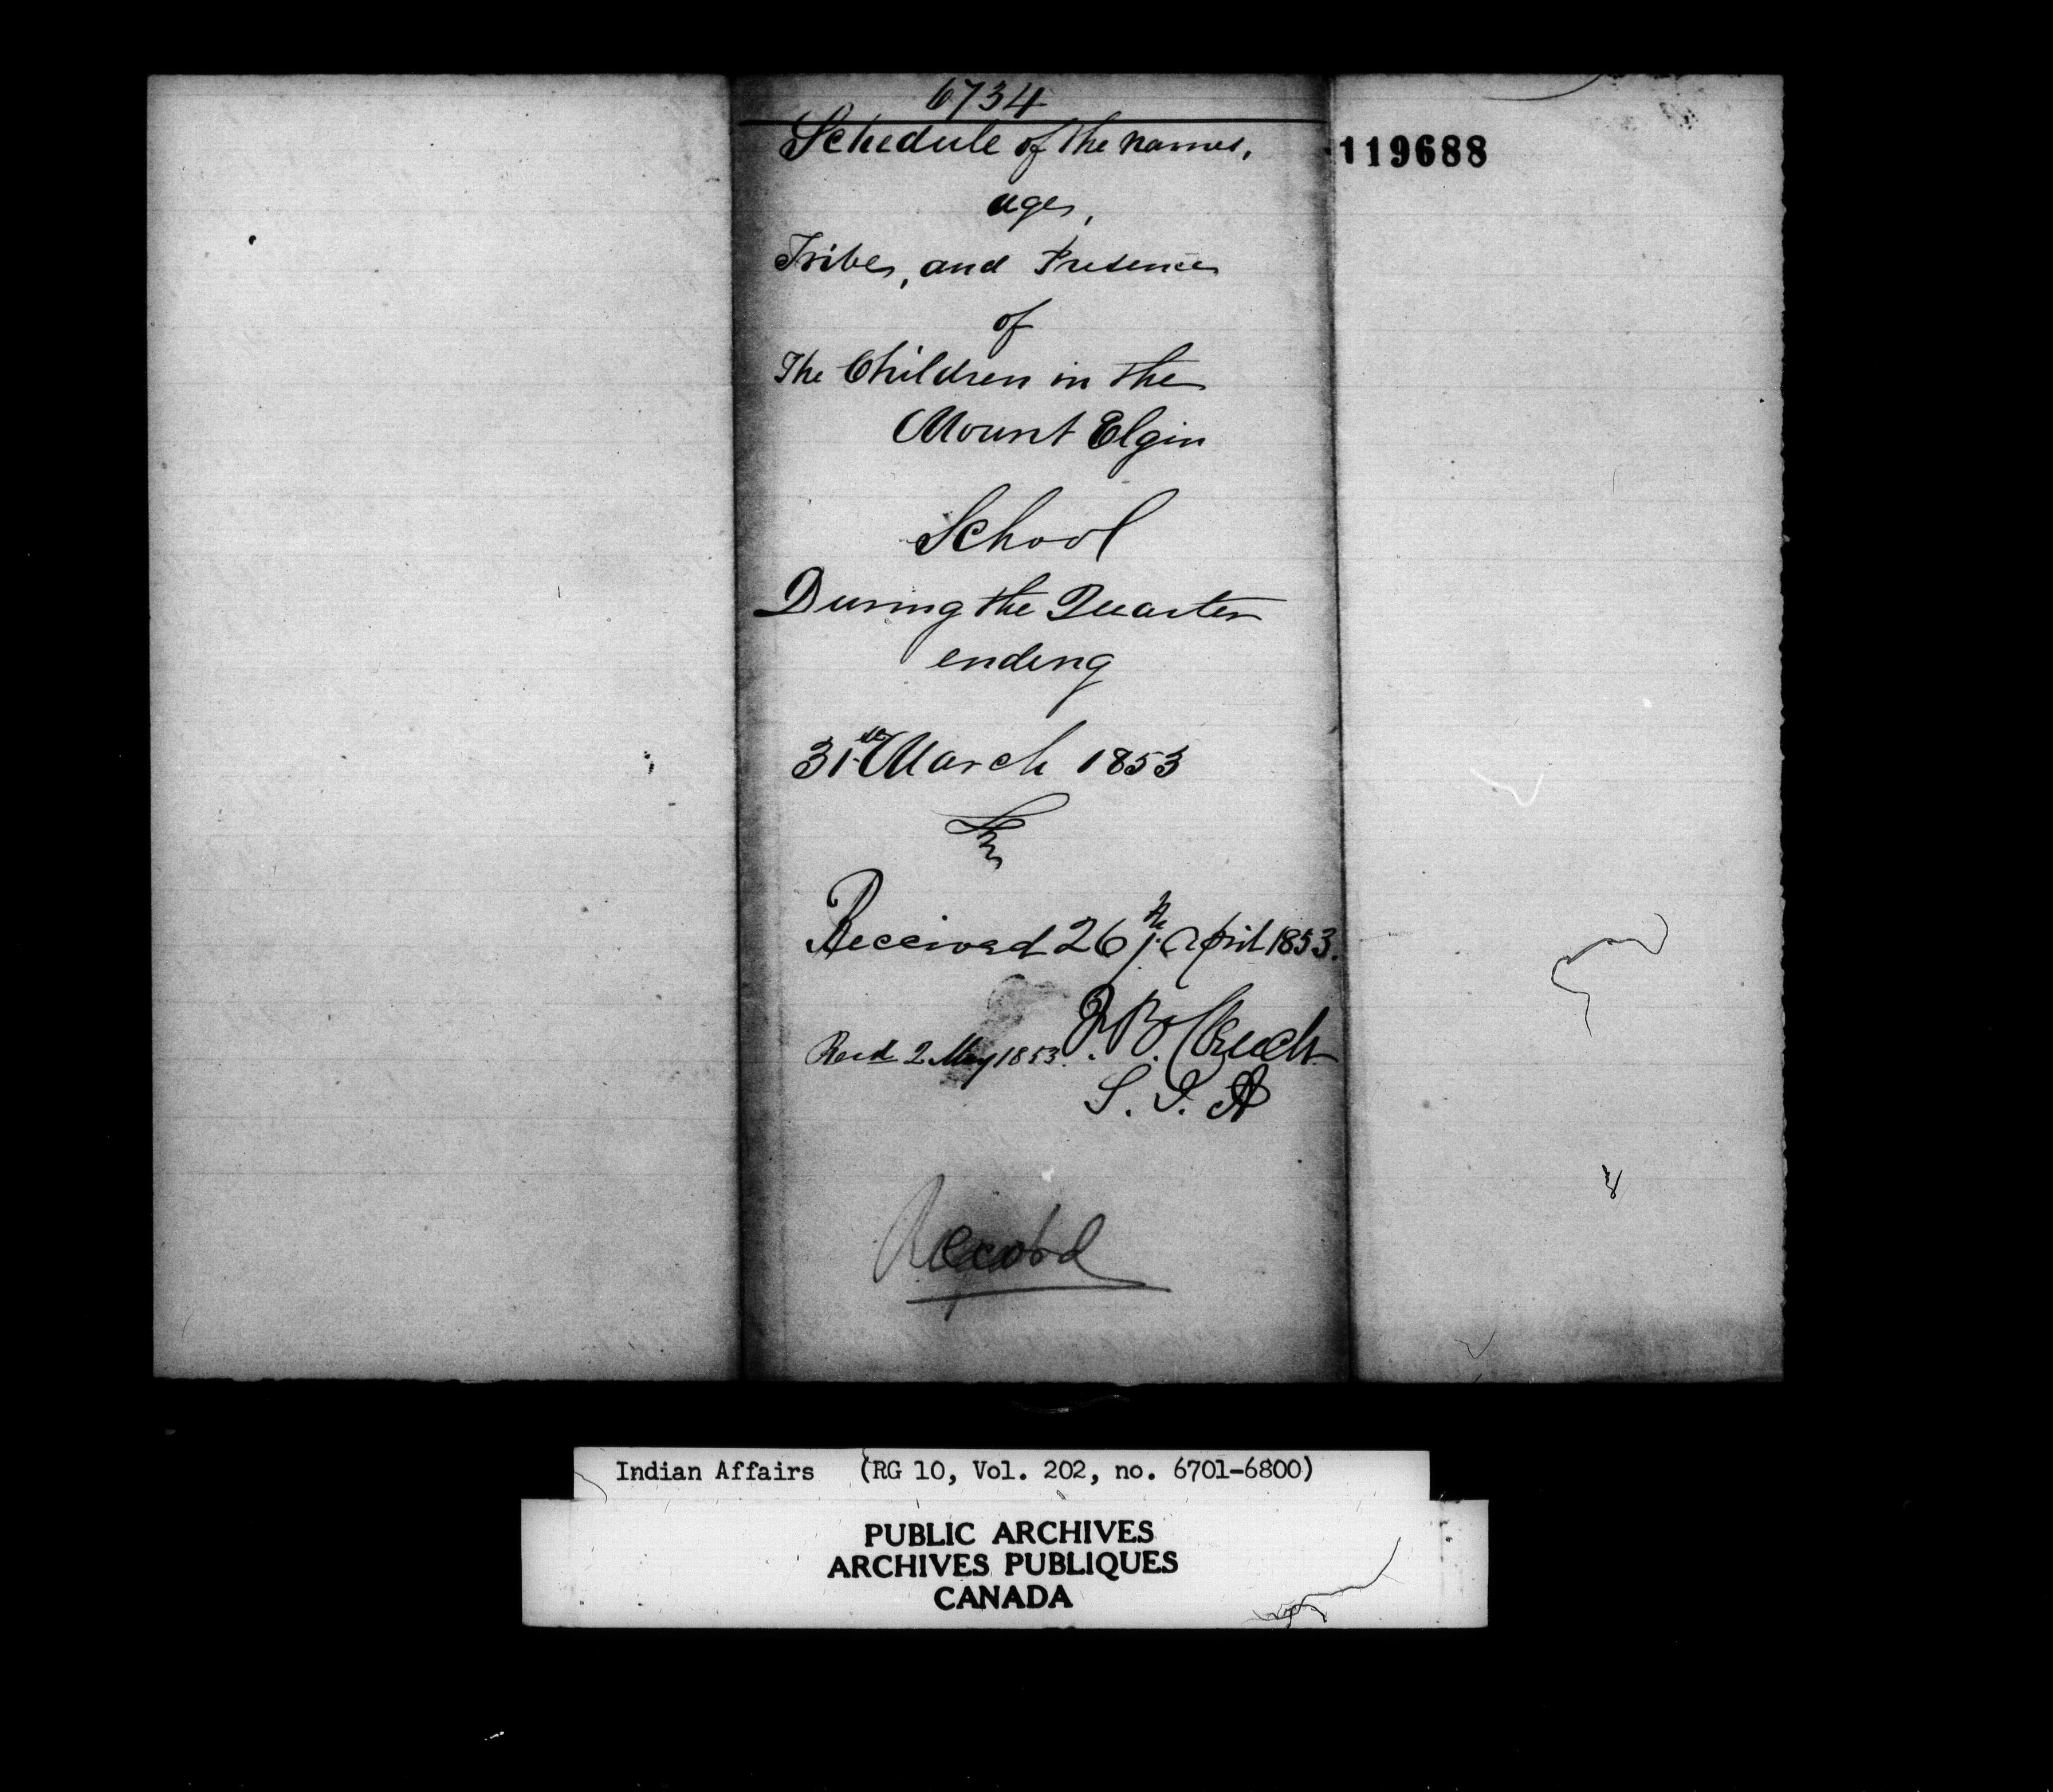 6734
Schedule of the names,
ages,
Tribes, and Presence
of
The Children in the
Mount Elgin
School
During the Quarter
ending
31st March 1853
Received 26th April 1853.
J. B. Clench
Recd 2 May 1853.
S. I. A
Record
119688
Indian Affairs (RG 10, Vol. 202, no. 6701-6800)
PUBLIC ARCHIVES
ARCHIVES PUBLIQUES
CANADA